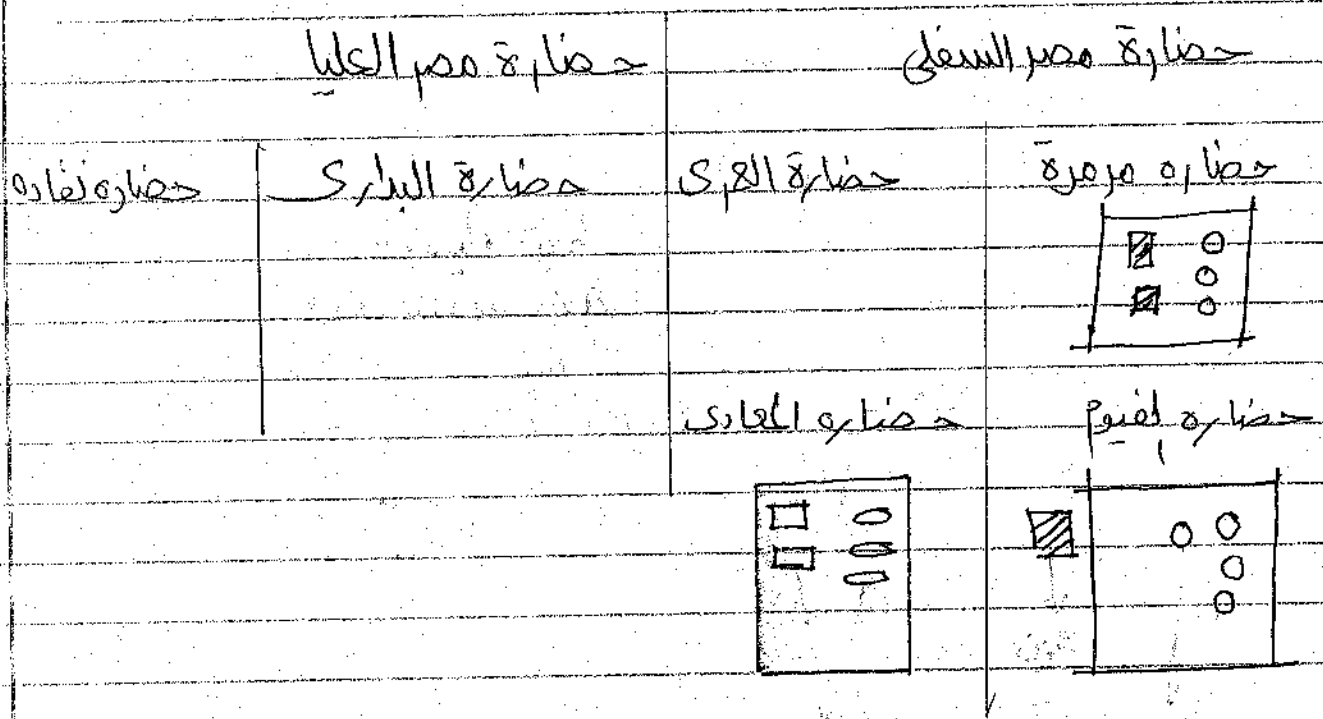 حضارة مصر السفلى
حضارة مصر العليا
حضاره مرمرة
حضارة العمرى
حضارة البدارى
حضاره نقاده
حضاره الفيوم
حضاره المعادى